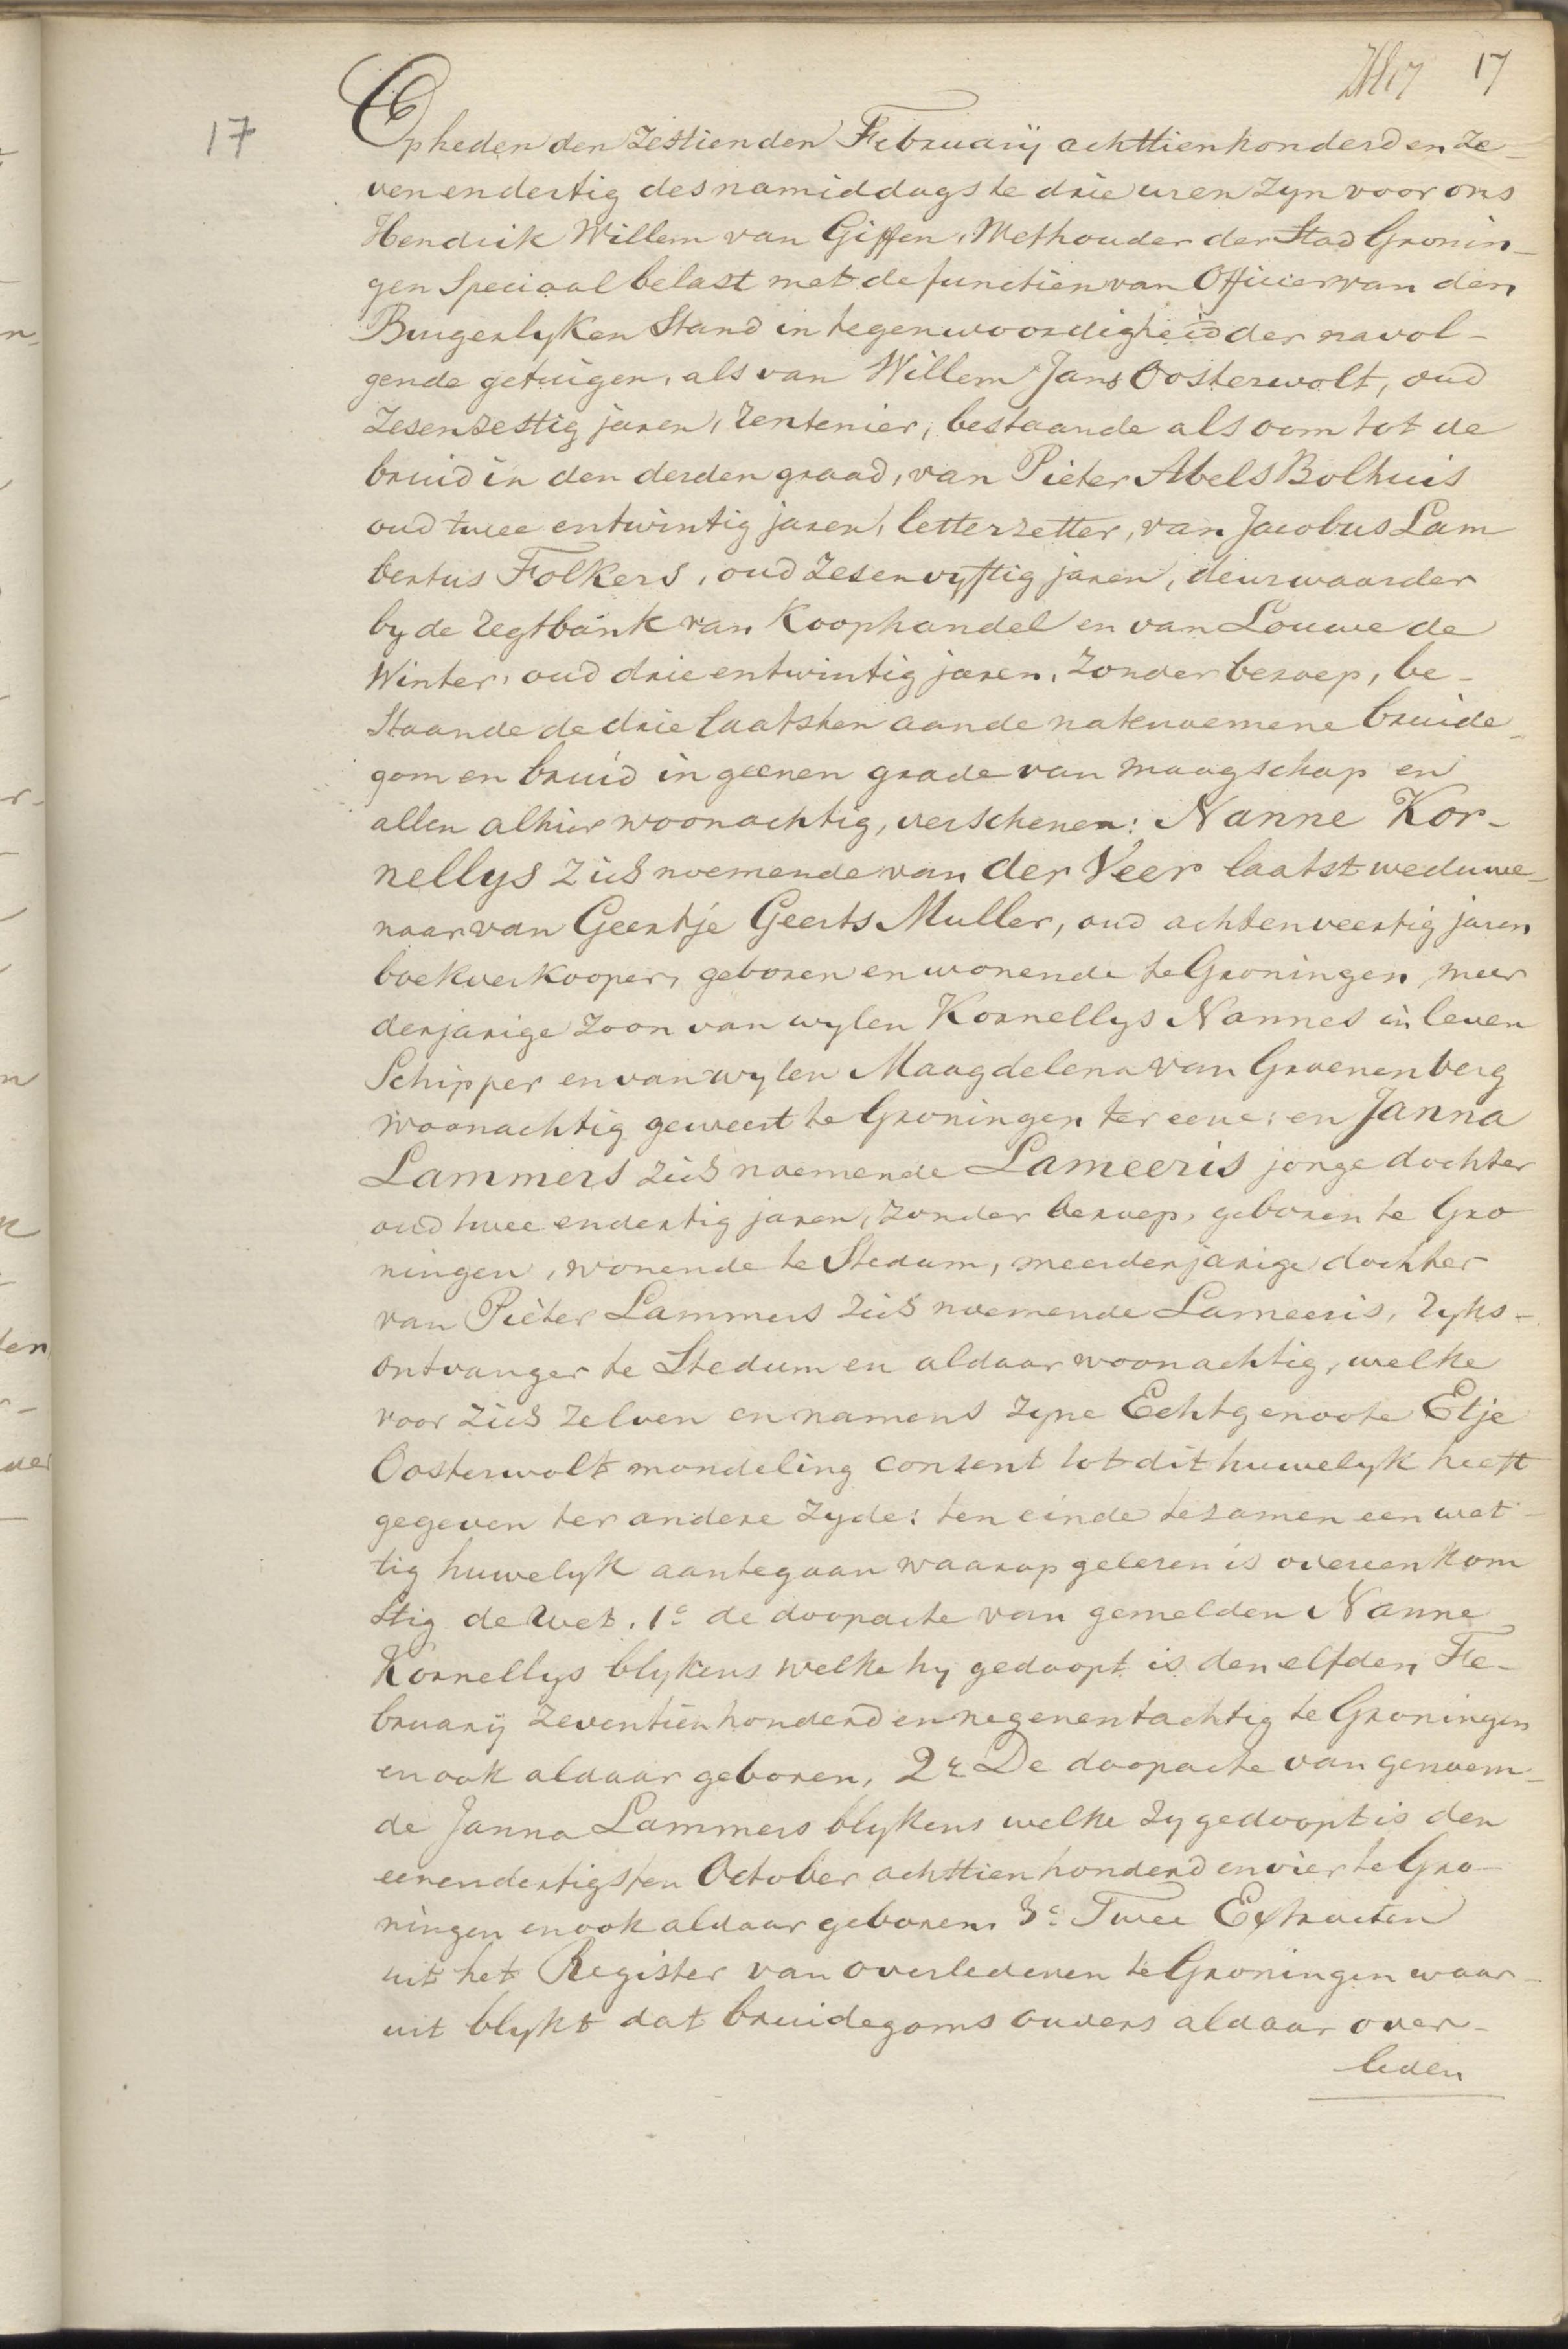 17
17
Op heden den Zestienden Februarij achttienhonderd en Ze-
ven en dertig des namiddags te drie uren zyn voor ons
Hendrik Willem van Giffen, Wethouder der Stad Gronin-
gen Speciaal belast met de functien van Officier van den
Burgerlyken Stand in tegenwoordigheid der navol-
gende getuigen, als van Willem Jans Oosterwolt, oud
Zesenzestig jaren, rentenier, bestaande als oom tot de
bruid in den derden graad, van Pieter Abels Bolhuis
oud twee entwintig jaren, letterzetter, van Jacobus Lam
bertus Folkers, oud Zesenvyftig jaren, deurwaarder
by de regtbank van Koophandel en van Louwe de
Winter, oud drie entwintig jaren, Zonder beroep, be-
Staande de drie laatsten aan de natenoemene bruide-
gom en bruid in geenen grade van maagschap en
allen alhier woonachtig, verschenen: Nanne Kor-
nellys zich noemende van der Veer laatst weduwe-
naar van Geertje Geerts Muller, oud achtenveertig jaren
boekverkooper, geboren en wonende te Groningen, meer
derjarige zoon van wylen Kornellys Nannes in leven
Schipper en van wylen Maagdelena van Groenenberg
woonachtig geweest te Groningen ter eene: en Janna
Lammers zich noemende Lameeris jonge dochter
oud twee endertig jaren, zonder beroep, geboren te Gro
ningen, wonende te Stedum, meerderjarige dochter
van Pieter Lammers zich noemende Lameeris, ryks-
ontvanger te Stedum en aldaar woonachtig, welke
voor zich zelven en namens zyne Echtgenoote Etje
Oosterwolt mondeling consent tot dit huwelyk heeft
gegeven ter andere zyde: ten einde te samen een wet-
tig huwelyk aantegaan waarop gelezen is overeenkom
Stig de wet. 1e de doopacte van gemelden Nanne
Kornellys blykens welke hy gedoopt is den elfden Fe-
bruarij zeventien honderd en negenentachtig te Groningen
en ook aldaar geboren, 2e De doopacte van genoem-
de Janna Lammers blykens welke zy gedoopt is den
eenendertigsten October achttien honderd en vier te Gro-
ningen en ook aldaar geboren. 3e Twee Extracten
uit het Register van overledenen te Groningen waar-
uit blykt dat bruidegoms ouders aldaar over-
leden